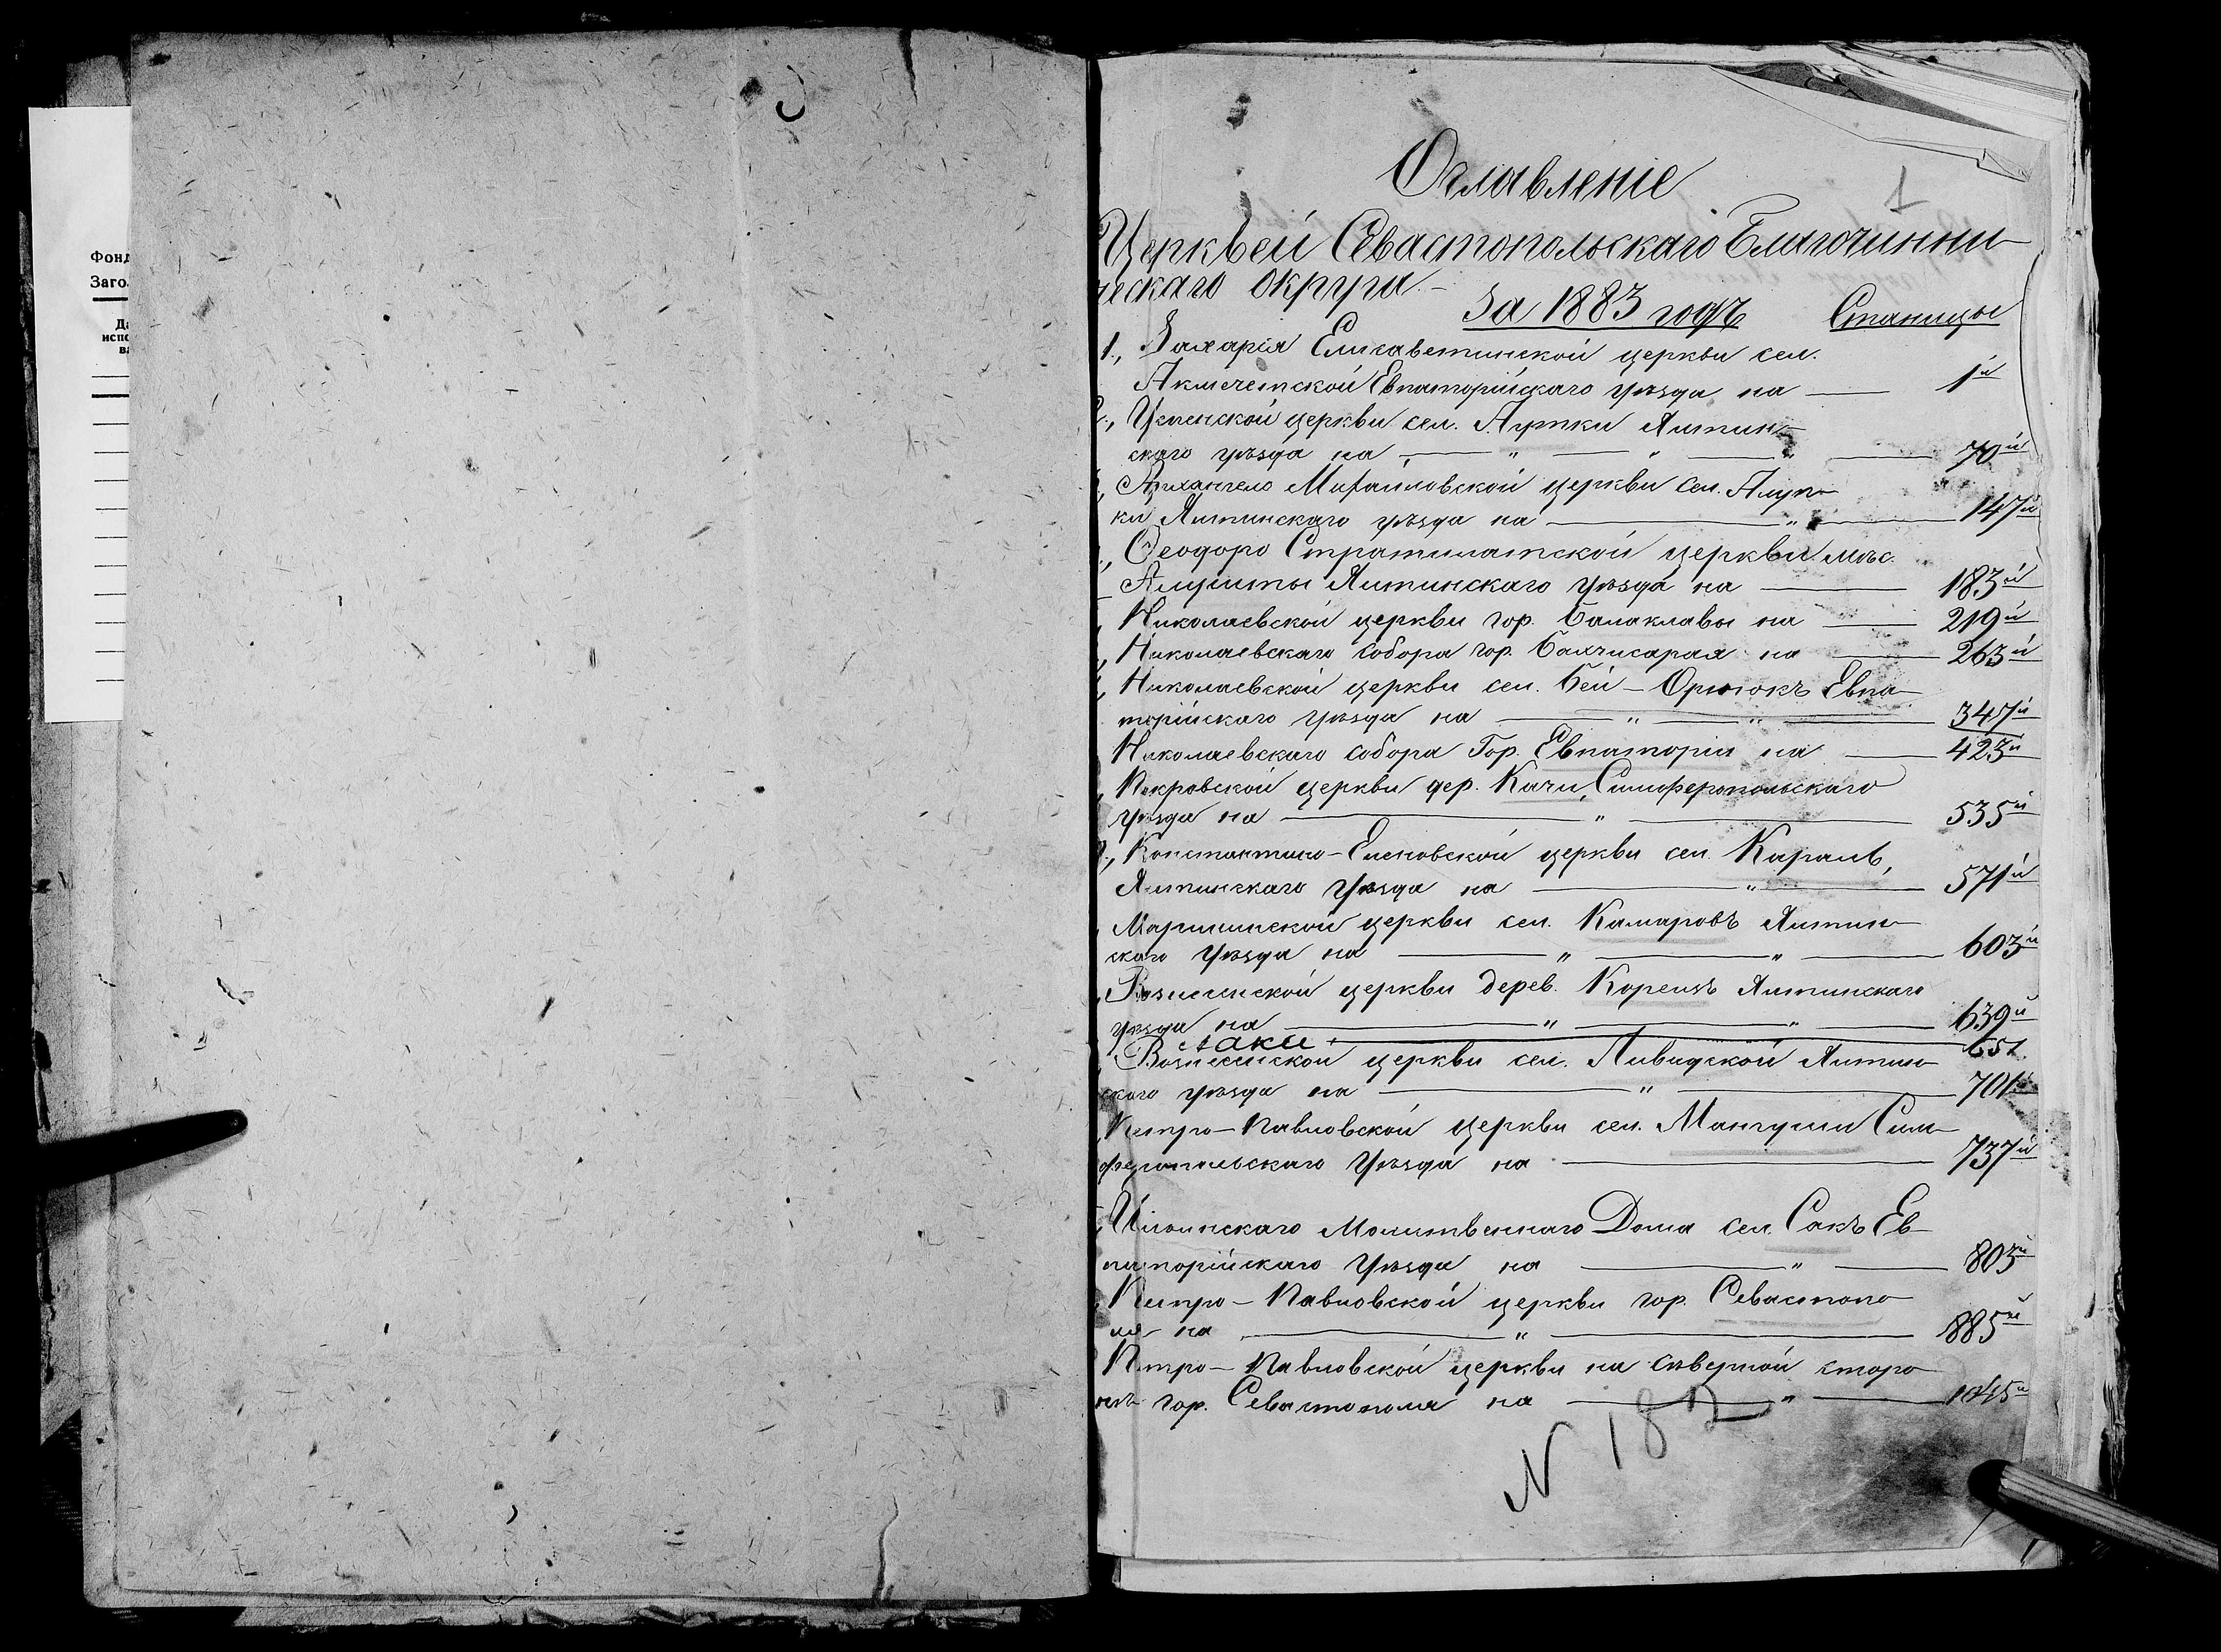 Фонд
Заго
Да
испо
ва
1
Оглавленіе
Церквей Севастопольскаго Благочинни-
ческаго округа
За 1883 годъ Страницы
1., Захарія Елисаветинской церкви сел.
Акмечетской Евпаторійскаго уѣзда на 1й
2., Успенской церкви сел. Аутки Ялтин-
скаго уѣзда на „ „ „ 70й
Архангело Михайловской церкви сел. Алуп-
ки Ялтинскаго уѣзда на „ 147й
Ѳеодоро Стратилатской церкви мѣс.
Алушты Ялтинскаго уѣзда на 183й
Николаевской церкви гор. Балаклавы на 219й
Николаевскаго собора гор. Бахчисарая на 263й
Николаевской церкви сел. Бей-Орлюкъ Евпа-
торійскаго уѣзда на „ „ 347й
Николаевскаго собора Гор. Евпаторіи на 423й
Покровской церкви дер. Качи, Симферопольскаго
уѣзда на „ 535й
Константино-Еленовской церкви сел. Карань,
Ялтинскаго уѣзда на „ 571й
Маріинской церкви сел. Камаровъ Ялтин-
скаго уѣзда на „ „ 603й
Вознесенской церкви дерев. Кореизъ Ялтинскаго
уѣзда на „ „ 639й
651
Вознесенской церкви сел. Ливидской Ялтин-
скаго уѣзда на „ 701й
Петро-Павловской церкви сел. Мангуши Сим-
феропольскаго уѣзда на 737й
Ильинскаго Молитвеннаго Дома сел. Сакъ Ев-
паторійскаго уѣзда на „ 803й
Петро-Павловской церкви гор. Севастопо-
ля на „ 885й
Петро-Павловской церкви на сѣверной сторо-
нѣ гор. Севастополя на „ 1045й
N 182